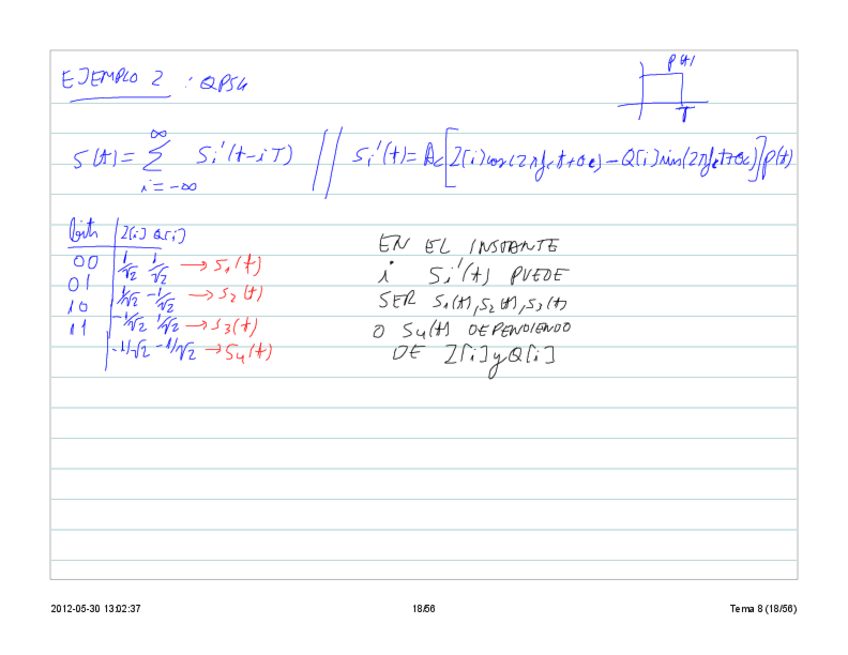 EJEMPLO 2 : QPSK
p(t)
T
S(t) = ∑_{i=-∞}^{∞} Si'(t-iT) // Si'(t) = Ac[I[i]cos(2πfct+θc) - Q[i]sin(2πfct+θc)]p(t)
bits I[i] Q[i]
00 1/√2 1/√2 → S1(t)
01 1/√2 -1/√2 → S2(t)
10 -1/√2 1/√2 → S3(t)
11 -1/√2 -1/√2 → S4(t)
EN EL INSTANTE
i Si'(t) PUEDE
SER S1(t), S2(t), S3(t)
O S4(t) DEPENDIENDO
DE I[i] y Q[i]
2012-05-30 13:02:37 18/56 Tema 8 (18/56)